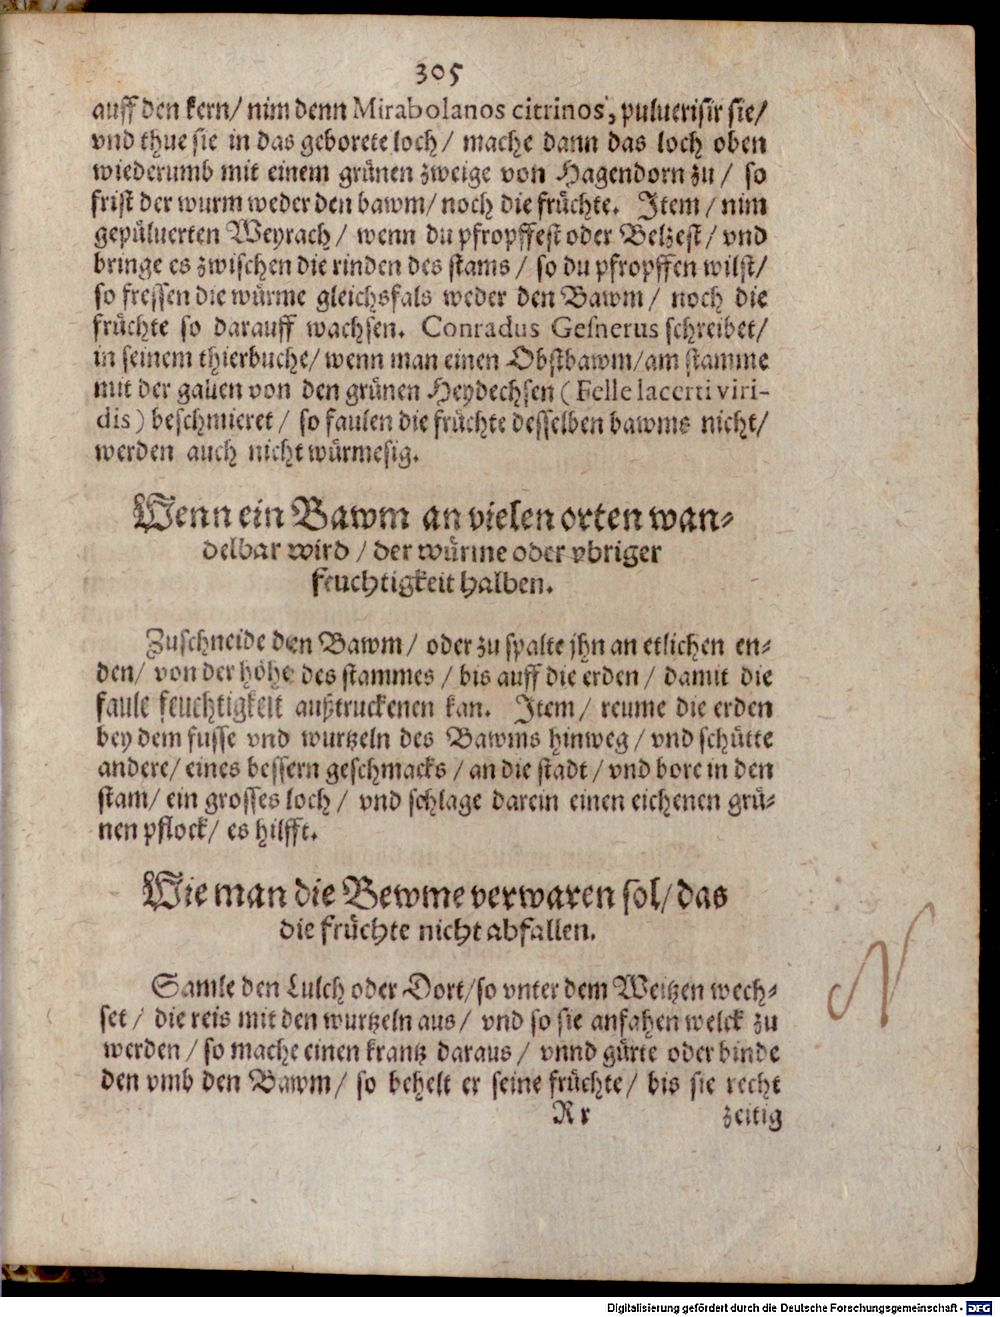 305
auff den kern/ nim denn Mirabolanos citrinos, puluerisir sie/
vnd thue sie in das geborete loch/ mache dann das loch oben
wiederumb mit einem grünen zweige von Hagendorn zu/ so
frist der wurm weder den bawm/ noch die früchte. Item/ nim
gepüluerten Weyrach/ wenn du pfropffest oder Belzest/ vnd
bringe es zwischen die rinden des stams/ so du pfropffen wilst/
so fressen die würme gleichsfals weder den Bawm/ noch die
früchte so darauff wachsen. Conradus Gesnerus schreibet/
in seinem thierbuche/ wenn man einen Obstbawm/ am stamme
mit der gallen von den grünen Heydechsen (Felle lacerti viri-
dis) beschmieret/ so faulen die früchte desselben bawms nicht/
werden auch nicht würmesig.
Wenn ein Bawm an vielen orten wan-
delbar wird/ der würme oder vbriger
feuchtigkeit halben.
Zuschneide den Bawm/ oder zu spalte jhn an etlichen en-
den/ von der höhe des stammes/ bis auff die erden/ damit die
faule feuchtigkeit außtruckenen kan. Item/ reume die erden
bey dem fusse vnd wurtzeln des Bawms hinweg/ vnd schütte
andere/ eines bessern geschmacks/ an die stadt/ vnd bore in den
stam/ ein grosses loch/ vnd schlage darein einen eichenen grü-
nen pflock/ es hilfft.
Wie man die Bewme verwaren sol/ das
die früchte nicht abfallen.
Samle den Lulch oder Dort/ so vnter dem Weitzen wech-
set/ die reis mit den wurtzeln aus/ vnd so sie anfahen welck zu
werden/ so mache einen krantz daraus/ vnnd gürte oder binde
den vmb den Bawm/ so behelt er seine früchte/ bis sie recht
Rr zeitig
Digitalisierung gefördert durch die Deutsche Forschungsgemeinschaft - DFG